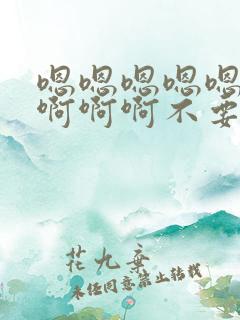 嗯嗯嗯嗯嗯
啊啊啊不要
花九弃
未经同意禁止转载